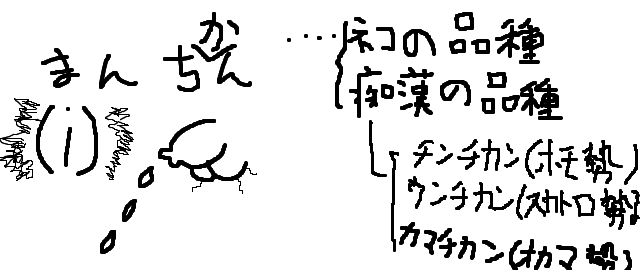 まんちかん
‥‥ネコの品種
痴漢の品種
チンチカン(ホモ勢)
ウンチカン(スカトロ勢)
カマチカン(オカマ勢)